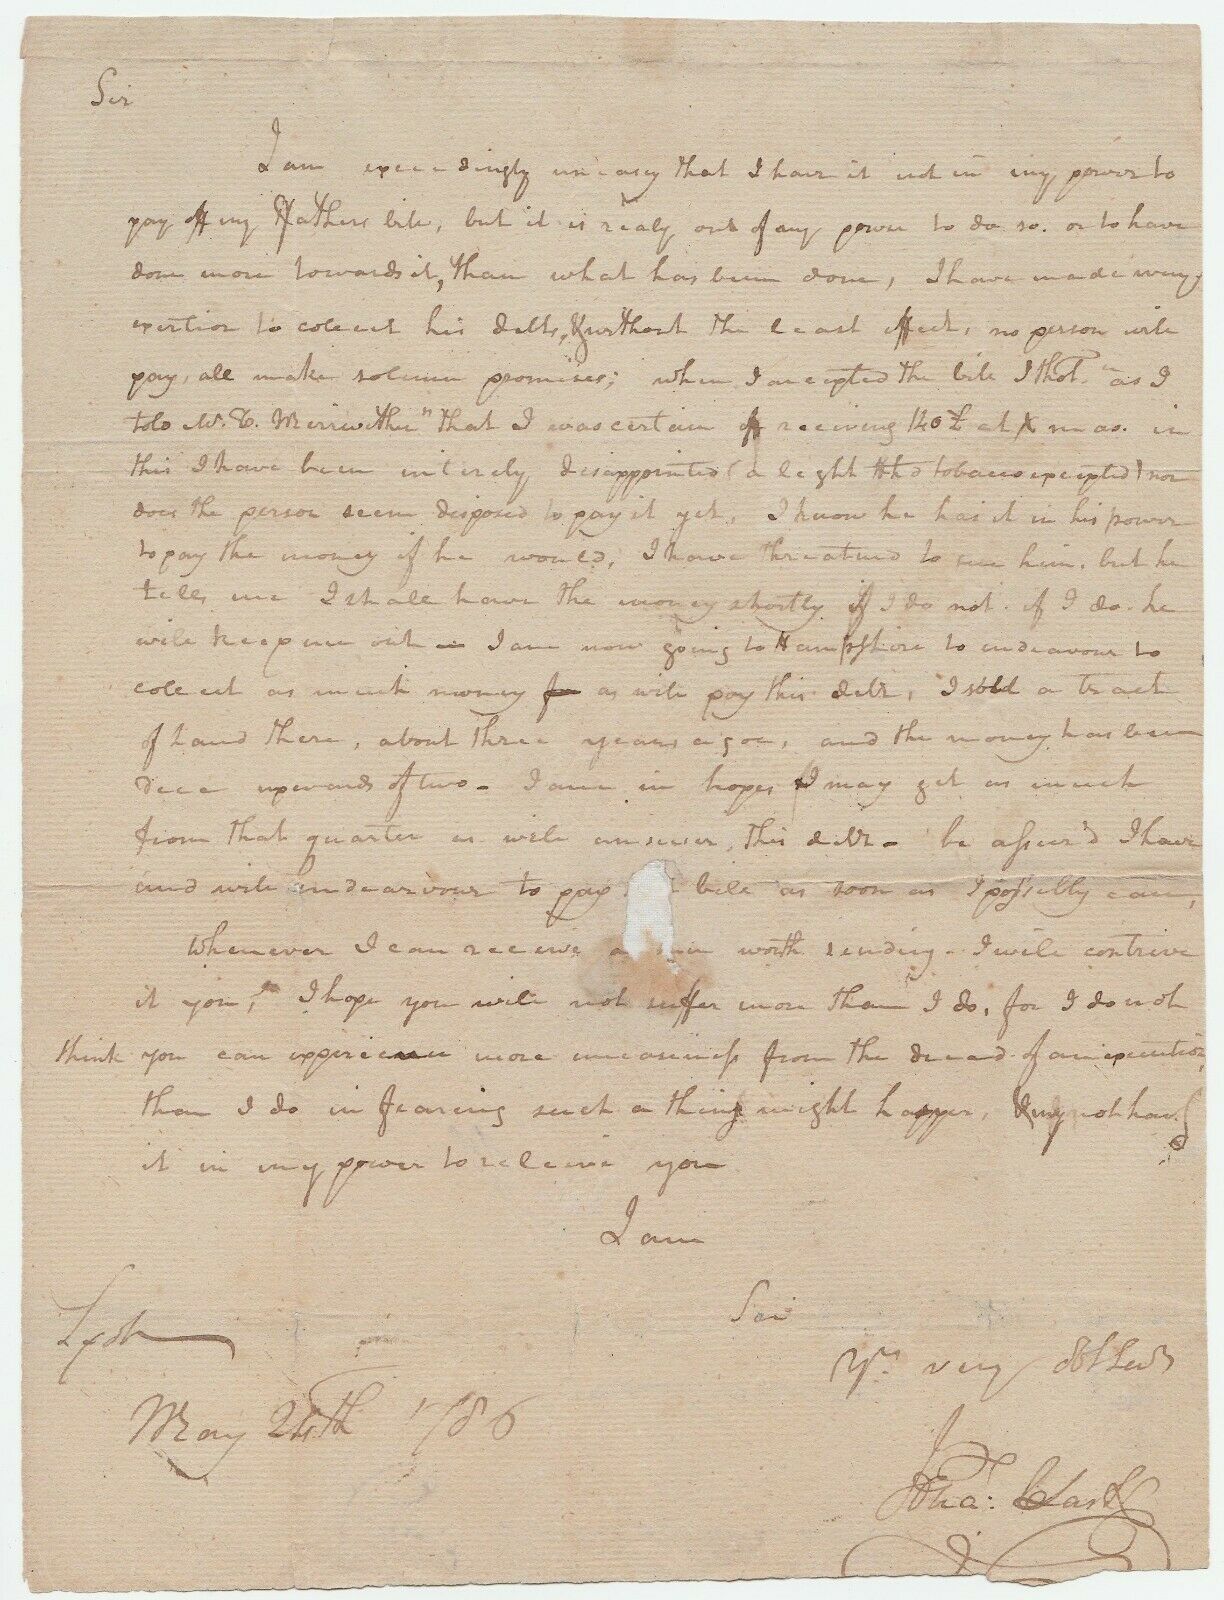 Sir
I am exceedingly uneasy that I have it not in my power to
pay off my Fathers bile, but it is realy out of my power to do so. or to have
done more towards it, than what has been done, I have made every
exertion to coleect his debts, & without the least effect, no person wile
pay, all make solemn promises; when I accepted the bile I thot. "as I
told Mr. Merriwether" that I was certain of receiving 140£ at Xmas. in
this I have been intirely disappointed (a leght Hhd tobacco excepted) nor
does the person seem disposed to pay it yet, I know he has it in his power
to pay the money if he would, I have threatned to sue him. but he
tells me I shall have the money shortly if I do not. if I do. he
wile keep me out — I am now going to Hampshire to endeavour to
coleect as much money as wile pay this debt, I sold a tract
of land there, about three years agoe, and the money has been
due upwards of two — I am in hopes I may get as much
from that quarter as wile answer, this debt — be assur'd I have
and wile endearvour to pay bile as soon as I possibly can,
Whenever I can receive a worth sending. I wile contrive
it you, I hope you wile not suffer more than I do, for I do not
think you can experience more uneasiness from the dread of an execution
than I do in fearing such a thing might happen, & my not have
it in my power to releive you
I am
Sir
Yr. very obt Servt
May 24th 1786
Jnoa: Clark